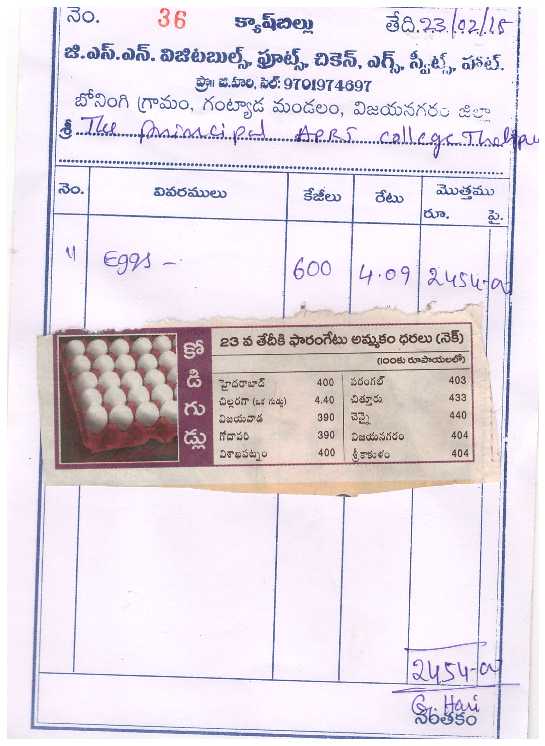 నెం. 36 క్యాష్‌బిల్లు తేది.23/02/15
జి.ఎస్.ఎన్. విజిటబుల్స్, ఫ్రూట్స్, చికెన్, ఎగ్స్, స్వీట్స్, హాట్.
ప్రొః జి.హరి, సెల్: 9701974697
బోనింగి గ్రామం, గంట్యాడ మండలం, విజయనగరం జిల్లా
శ్రీ The Principal APRJ college
నెం. వివరములు కేజీలు రేటు మొత్తము
రూ. పై.
1) Eggs – 600 4.09 2454-00
కోడిగుడ్లు
23 వ తేదీకి ఫారంగేటు అమ్మకం ధరలు (నెక్)
(100కు రూపాయలలో)
హైదరాబాద్ 400 వరంగల్ 403
చిల్లరగా (ఒక గుడ్డు) 4.40 చిత్తూరు 433
విజయవాడ 390 చెన్నై 440
గోదావరి 390 విజయనగరం 404
విశాఖపట్నం 400 శ్రీకాకుళం 404
2454-00
G. Hari
సంతకం